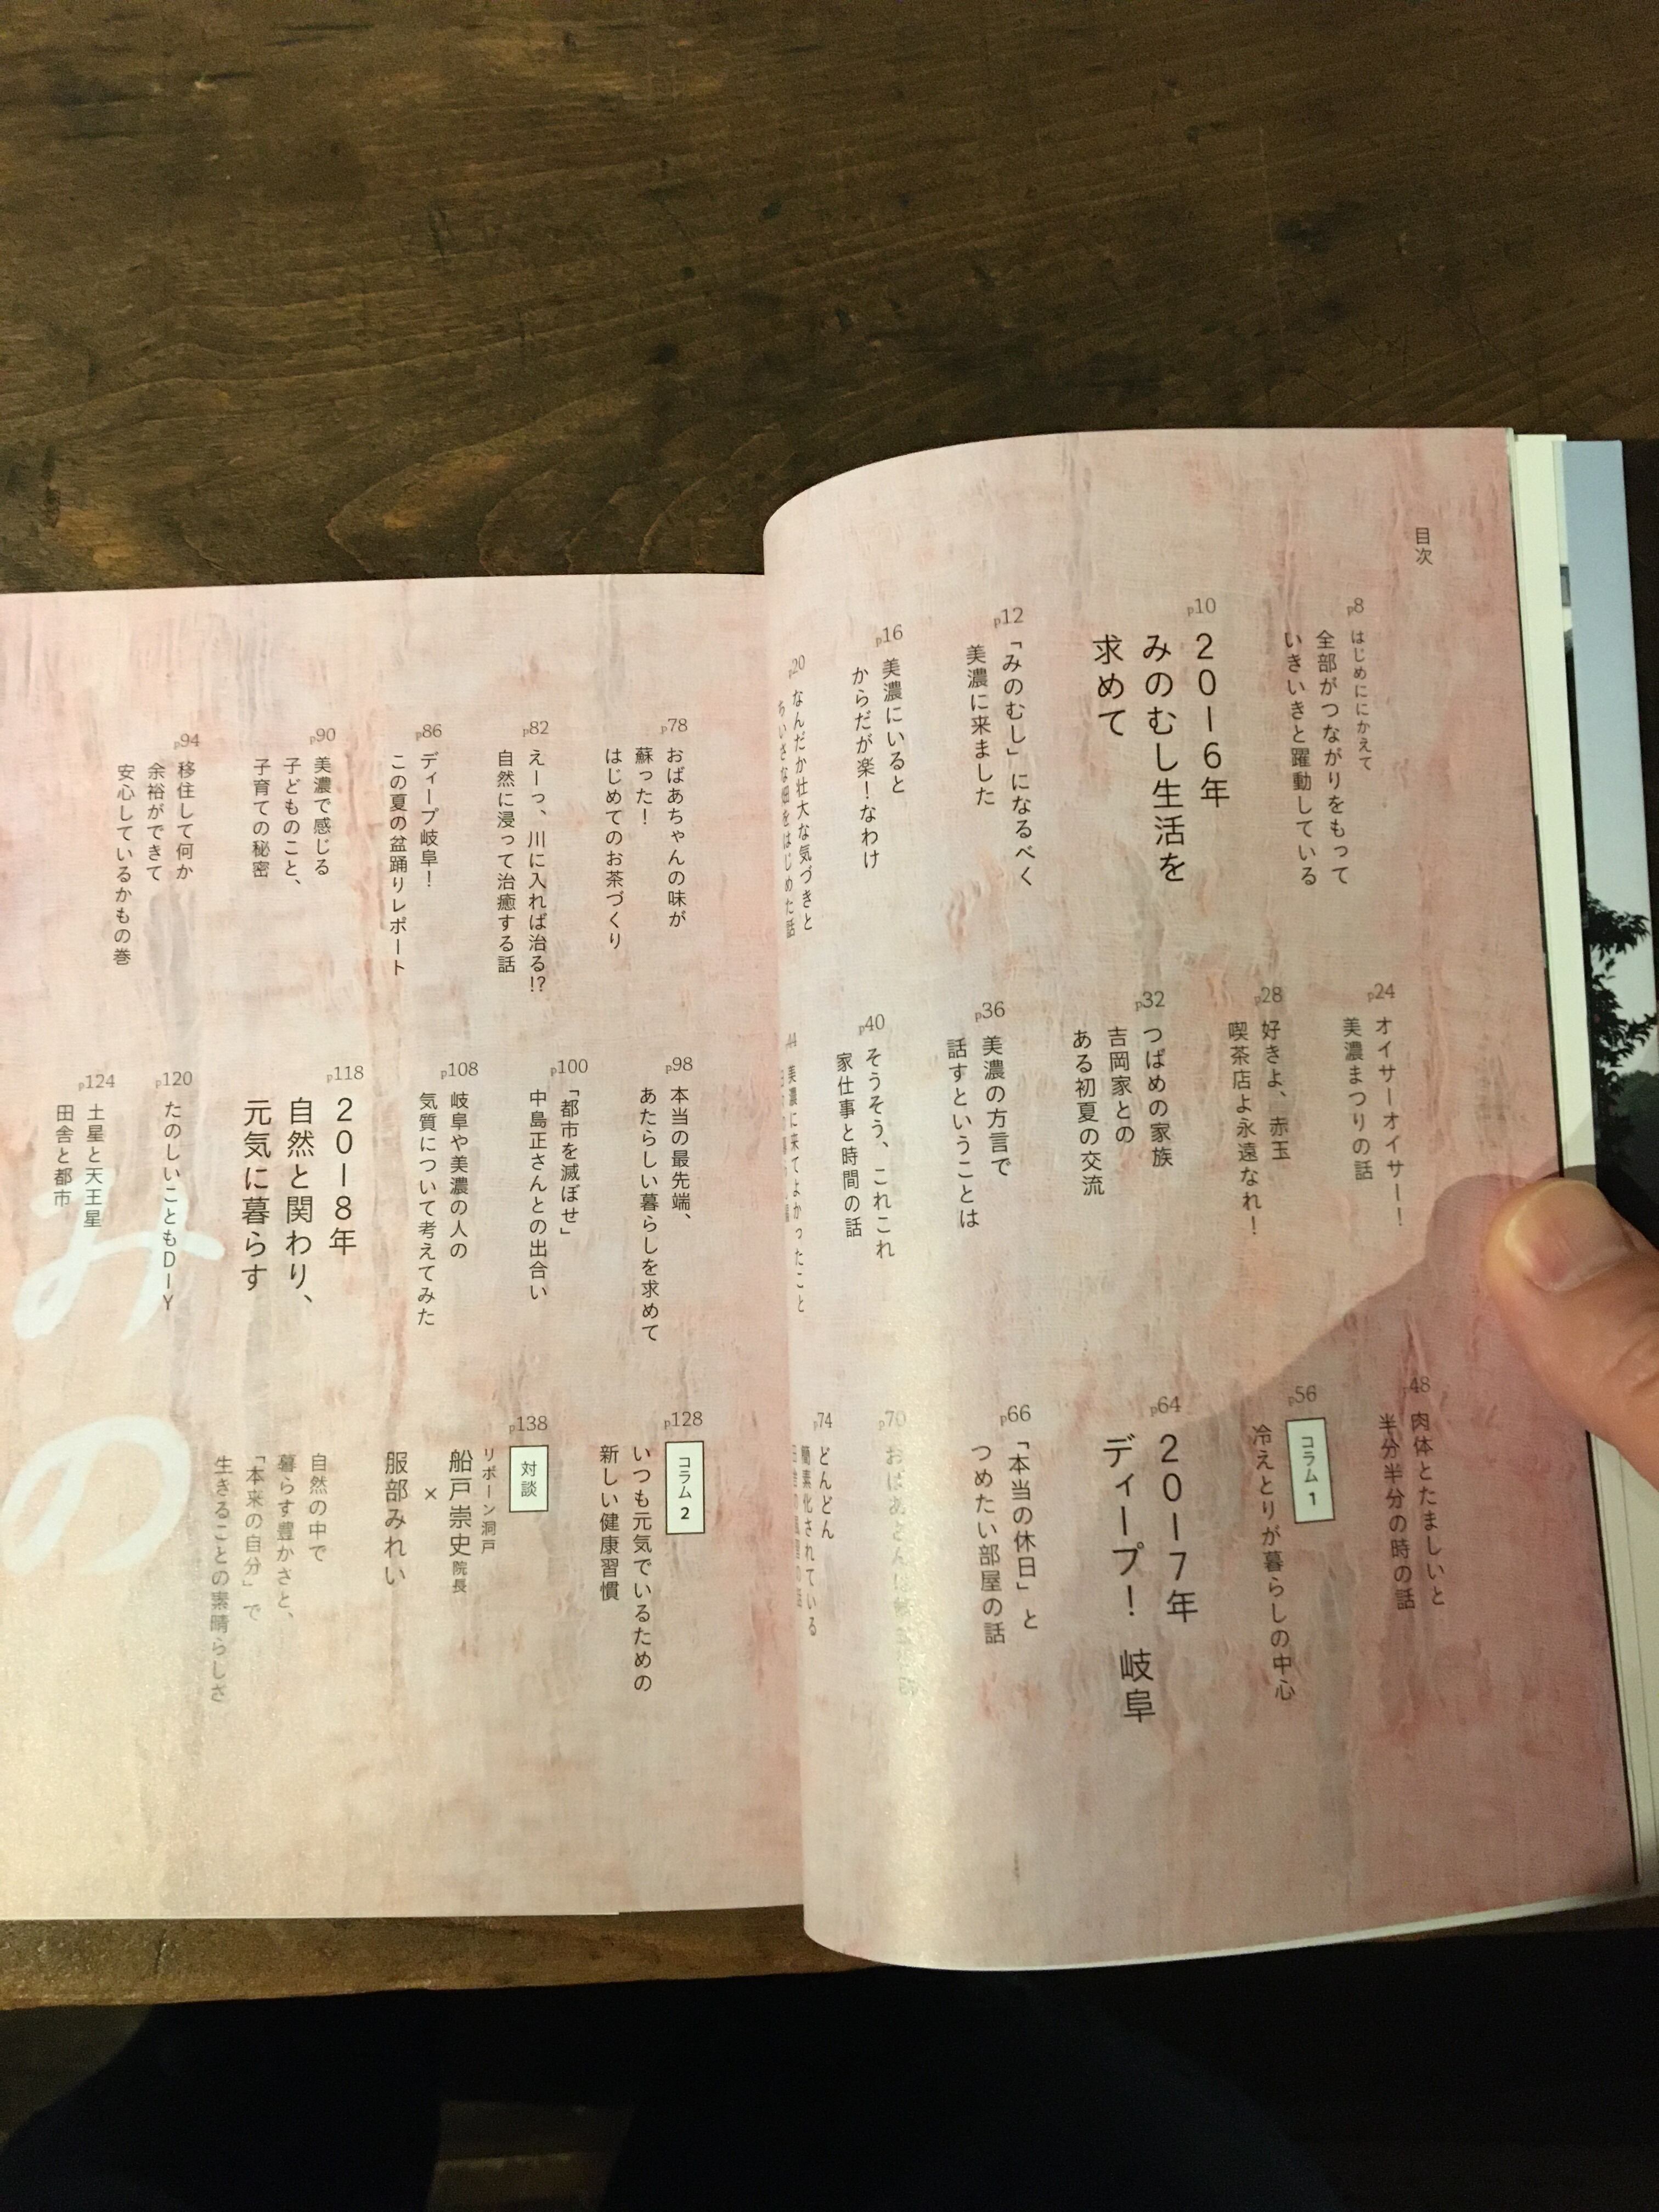 目次
p8
はじめににかえて
全部がつながりをもって
いきいきと躍動している
p10
2016年
みのむし生活を
求めて
p12
「みのむし」になるべく
美濃に来ました
p16
美濃にいると
からだが楽！なわけ
p20
なんだか壮大な気づきと
ちいさな畑をはじめた話
p24
オイサーオイサー！
美濃まつりの話
p28
好きよ、赤玉
喫茶店よ永遠なれ！
p32
つばめの家族
吉岡家との
ある初夏の交流
p36
美濃の方言で
話すということは
p40
そうそう、これこれ
家仕事と時間の話
44
美濃に来てよかったこと
p48
肉体とたましいと
半分半分の時の話
p56
コラム1
冷えとりが暮らしの中心
p64
2017年
ディープ！ 岐阜
p66
「本当の休日」と
つめたい部屋の話
p70
p74
どんどん
簡素化されている
p78
おばあちゃんの味が
蘇った！
はじめてのお茶づくり
p82
えーっ、川に入れば治る!?
自然に浸って治癒する話
p86
ディープ岐阜！
この夏の盆踊りレポート
p90
美濃で感じる
子どものこと、
子育ての秘密
p94
移住して何か
余裕ができて
安心しているかもの巻
p98
本当の最先端、
あたらしい暮らしを求めて
p100
「都市を滅ぼせ」
中島正さんとの出合い
p108
岐阜や美濃の人の
気質について考えてみた
p118
2018年
自然と関わり、
元気に暮らす
p120
たのしいこともDIY
p124
土星と天王星
田舎と都市
p128
コラム2
いつも元気でいるための
新しい健康習慣
p138
対談
リボーン洞戸
船戸崇史院長
×
服部みれい
自然の中で
暮らす豊かさと、
「本来の自分」で
生きることの素晴らしさ
みの